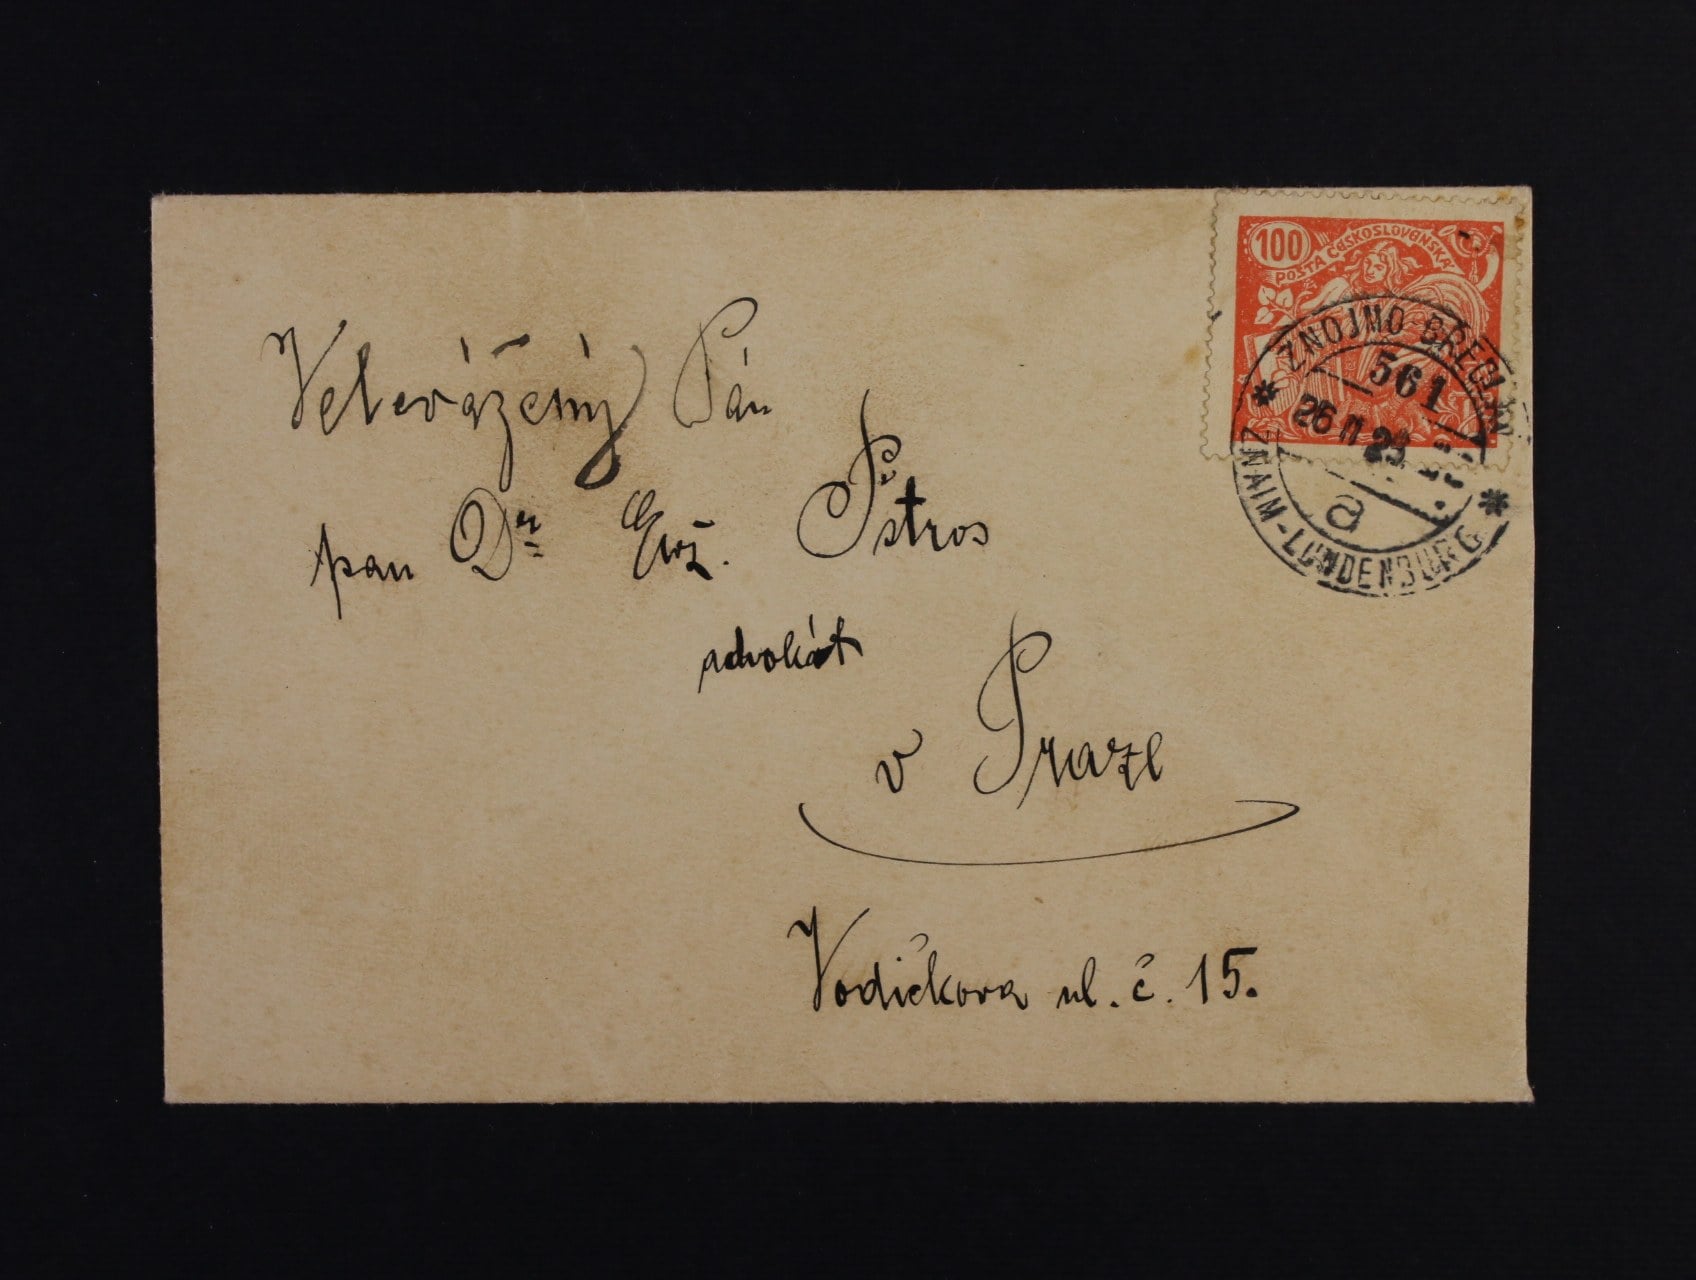 100
POŠTA ČESKOSLOVENSKÁ
ZNOJMO-BŘECLAV
561
26 II 23
a
ZNAIM-LUNDENBURG
Velevážený Pán
pan Dr Evž. Pštros
advokát
v Praze
Vodičkova ul. č. 15.